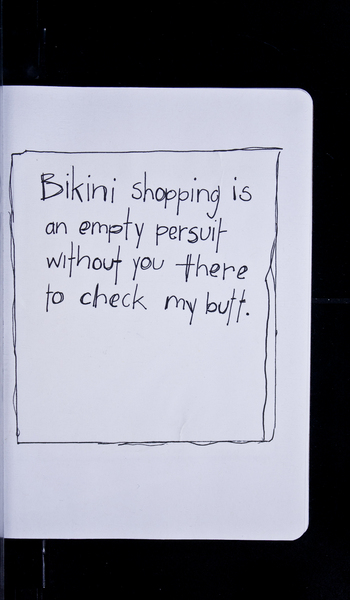 Bikini shopping is
an empty persuit
without you there
to check my butt.